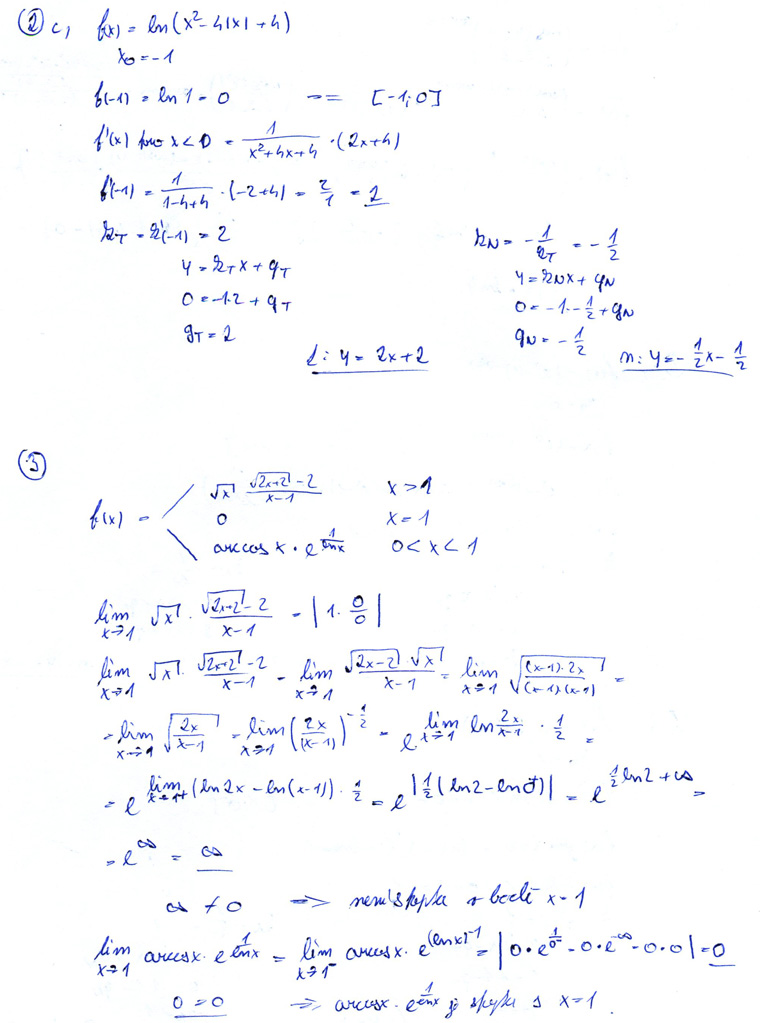 ② c, f(x) = ln(x² - 4|x| + 4)
x₀ = -1
f(-1) = ln 1 = 0 [-1; 0]
f'(x) pro x < 0 = 1/(x²+4x+4) · (2x+4)
f'(-1) = 1/(1-4+4) · (-2+4) = 2/1 = 2
k_T = k'(-1) = 2 k_N = -1/k_T = -1/2
y = k_T x + q_T y = k_N x + q_N
0 = -1·2 + q_T 0 = -1·-1/2 + q_N
q_T = 2 q_N = -1/2
t: y = 2x + 2 n: y = -1/2 x - 1/2
③
√x (√(2x+2) - 2)/(x-1) x > 1
f(x) = 0 x = 1
arccos x · e^(1/ln x) 0 < x < 1
lim x→1 √x · (√(2x+2) - 2)/(x-1) = |1 · 0/0|
lim x→1 √x · (√(2x+2) - 2)/(x-1) = lim x→1 (√(2x-2) · √x)/(x-1) = lim x→1 √(((x-1)·2x)/((x-1)·(x-1))) =
= lim x→1 √(2x/(x-1)) = lim x→1 (2x/(x-1))^(-1/2) = e^(lim x→1 ln 2x/(x-1) · 1/2) =
= e^(lim x→1+ (ln 2x - ln(x-1)) · 1/2) = e^|1/2 (ln 2 - ln 0⁺)| = e^(1/2 ln 2 + ∞) =
= e^∞ = ∞
∞ ≠ 0 => není v bodě x = 1
lim x→1 arccos x · e^(1/ln x) = lim x→1⁻ arccos x · e^((ln x)^-1) = |0 · e^(1/0⁻) = 0 · e^(-∞) = 0 · 0| = 0
0 = 0 => arccos x · e^(1/ln x) je x = 1